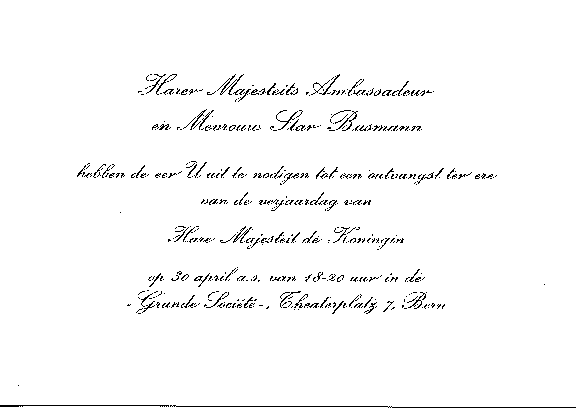 Harer Majesteits Ambassadeur
en Mevrouw Star Busmann
hebben de eer U uit te nodigen tot een ontvangst ter ere
van de verjaardag van
Hare Majesteit de Koningin
op 30 april a.s. van 18-20 uur in de
- Grande Société -, Theaterplatz 7, Bern